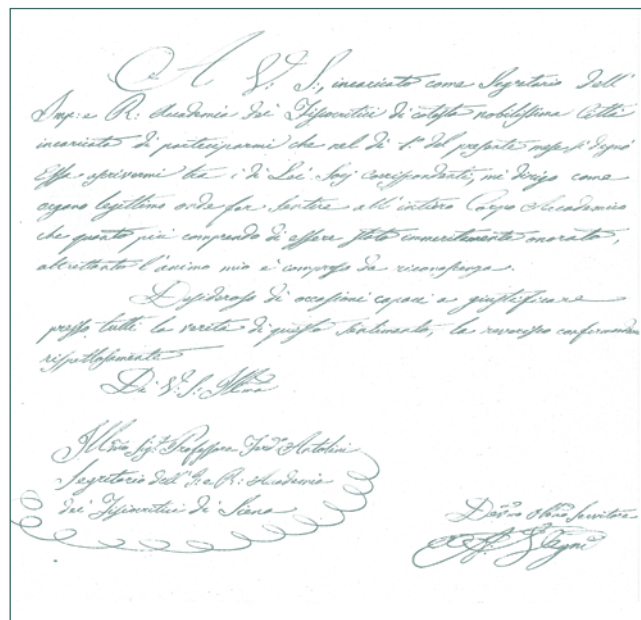 A V. S., incaricato come Segretario dell'
Imp: e R: Accademia dei Fisiocritici di cotesta nobilissima Città
incaricato di parteciparmi che nel dì 1° del presente mese si degnò
Essa scrivermi tra i di Lei Socj corrispondenti, mi dirigo come
organo legittimo onde far sentire all'intiero Corpo Accademico
che quanto più comprendo di essere stato immeritamente onorato,
altrettanto l'animo mio è compreso da riconoscenza.
Desideroso di occasioni capaci a giustificare
presso tutti la verità di questo sentimento, la reverisco confermandomi
rispettosamente
Di V. S. Illma
Illmo Sigr. Professore Ferdo Antolini
Segretario dell' I. e R. Accademia
dei Fisiocritici di Siena
Devmo Obbmo Servitore